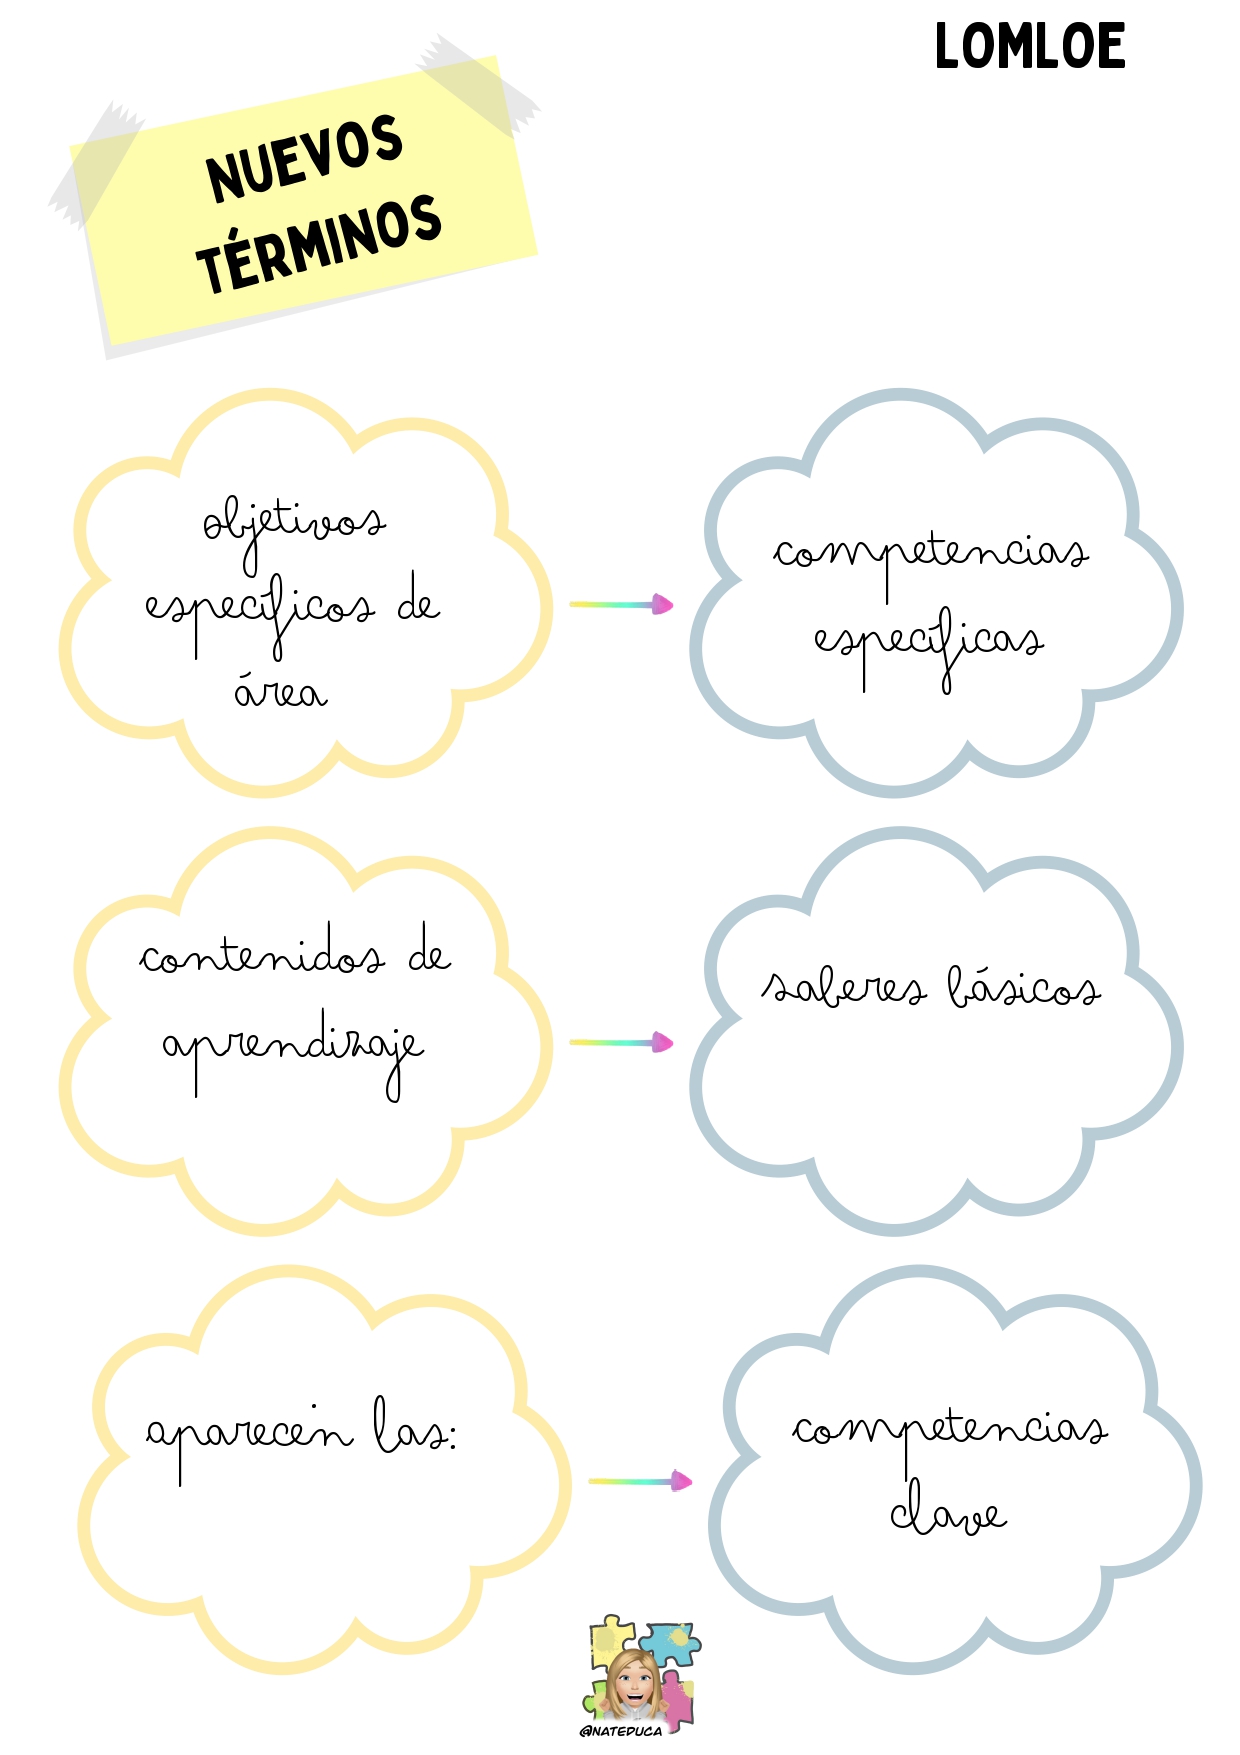 LOMLOE
NUEVOS
TÉRMINOS
objetivos
específicos de
área
competencias
específicas
contenidos de
aprendizaje
saberes básicos
aparecen las:
competencias
clave
@NATEDUCA